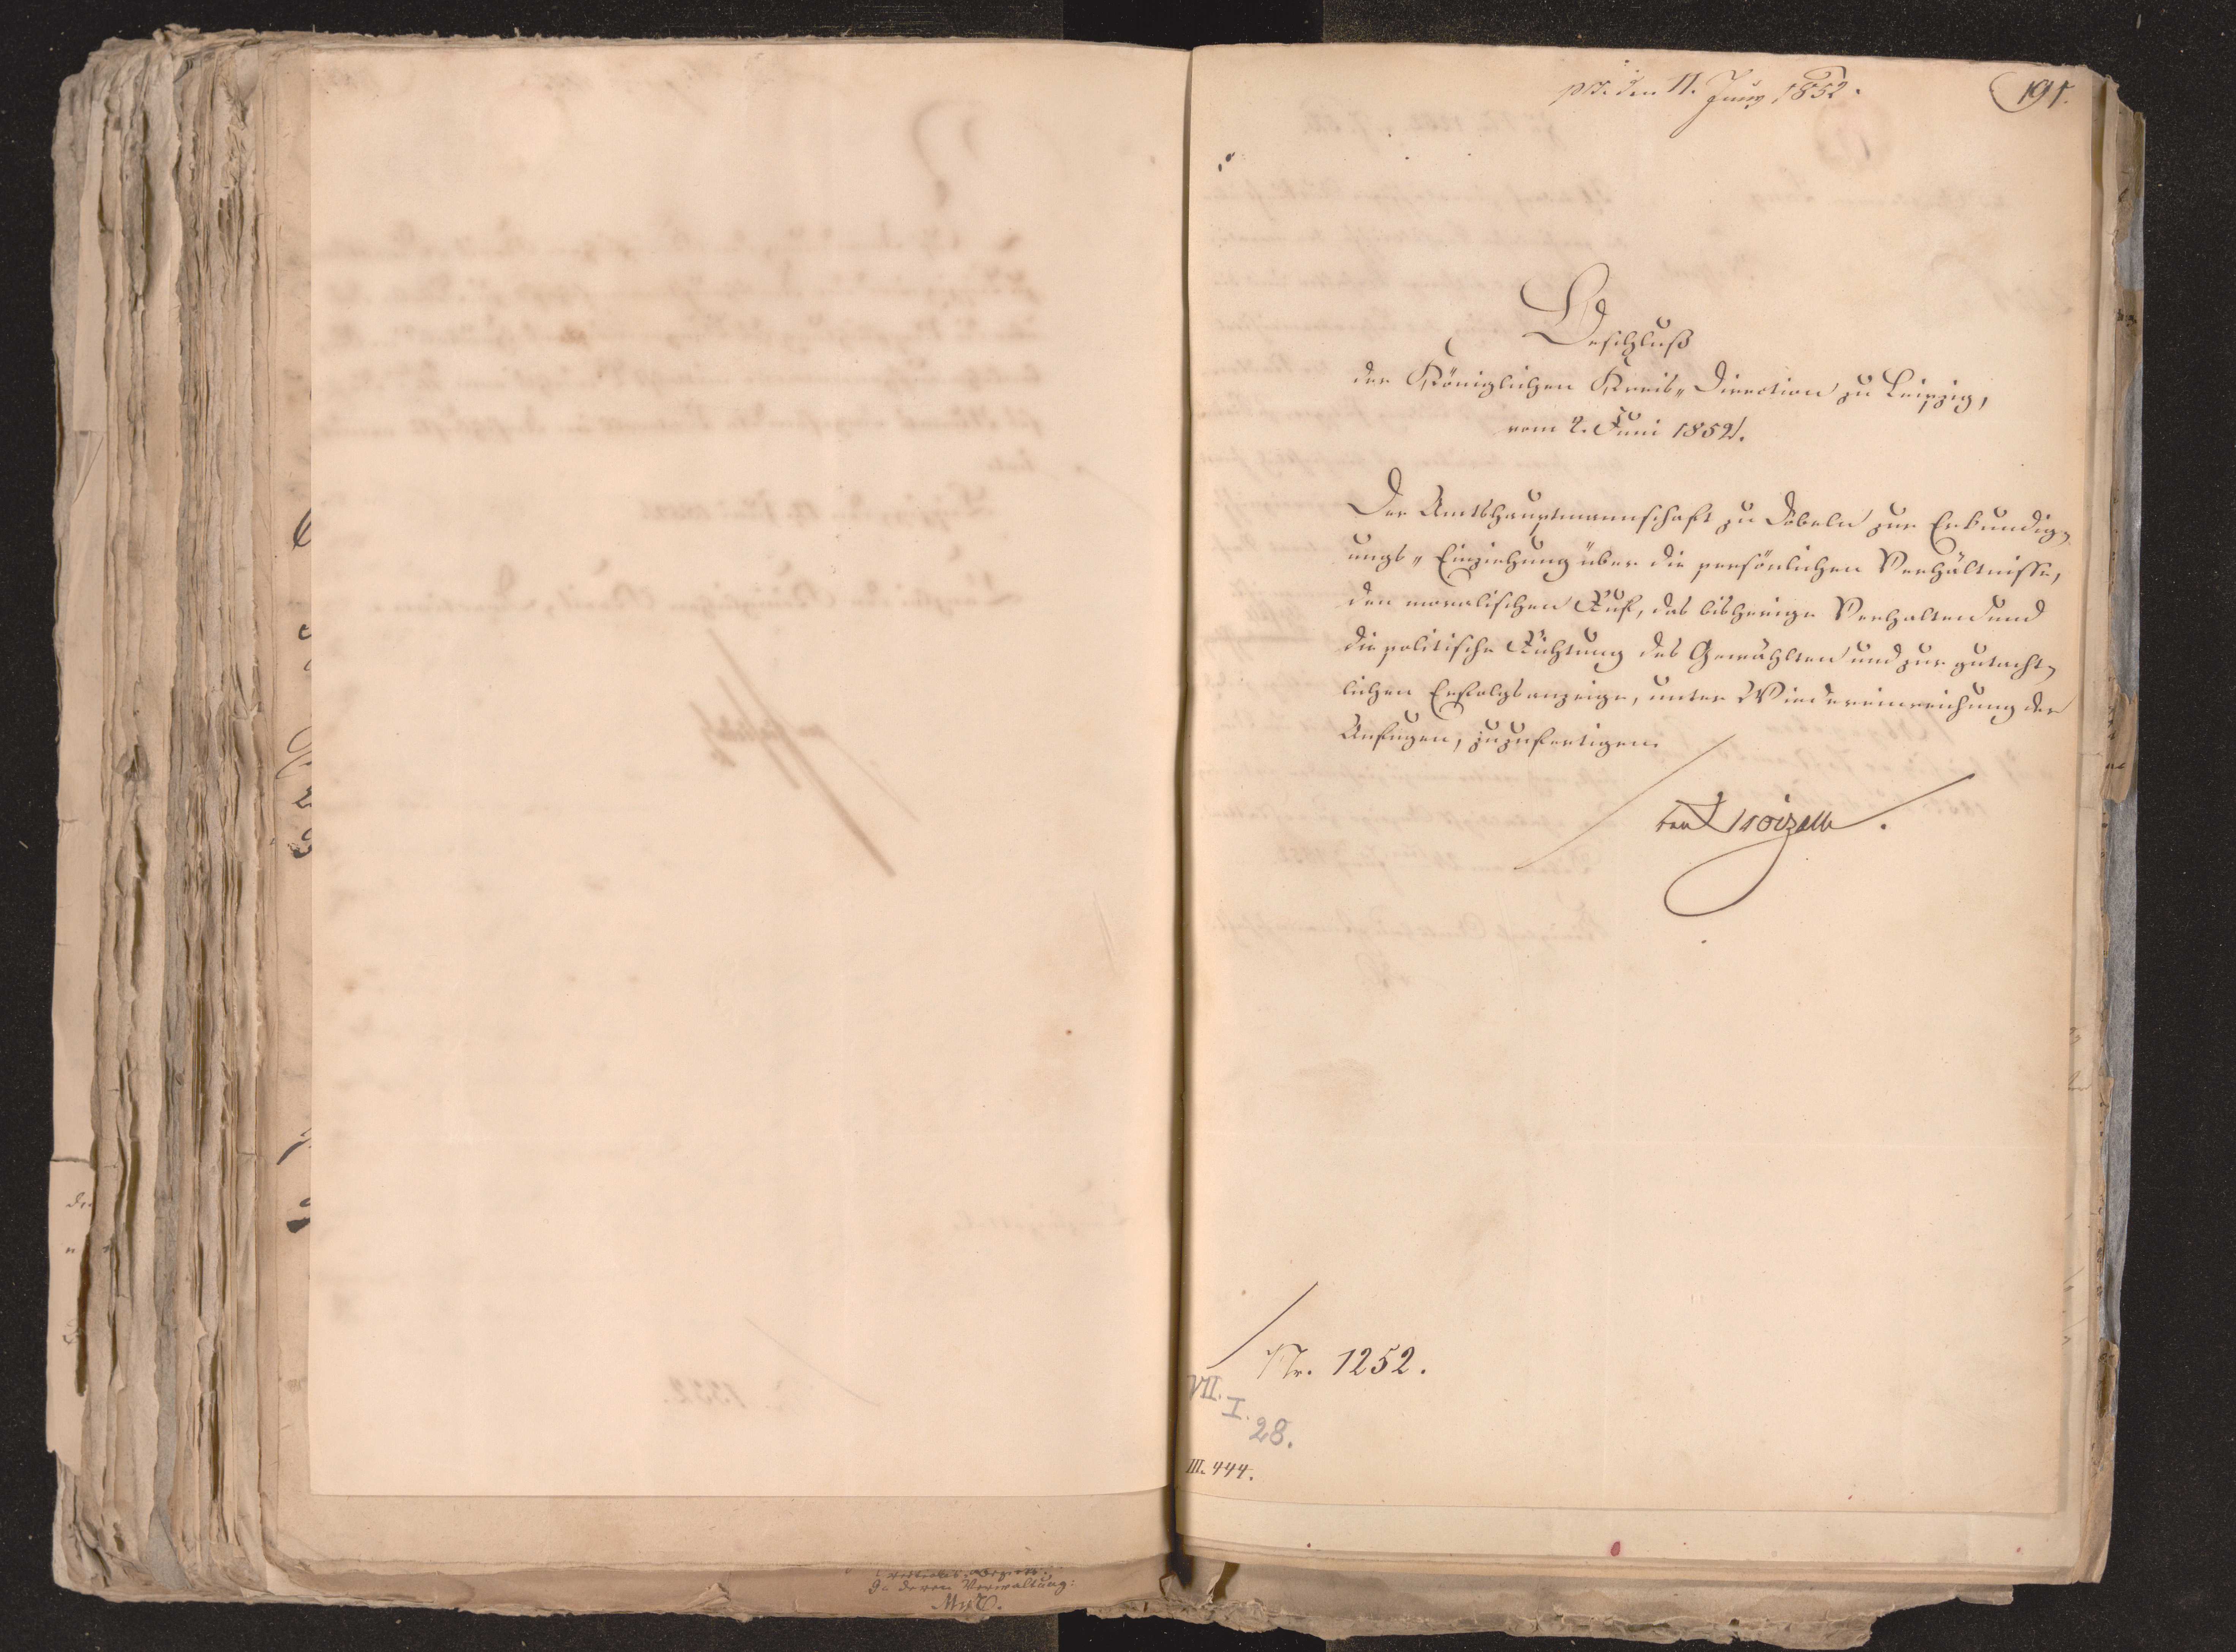 pst. den 11. Juny 1852.
191.
Beschluß
der Königlichen Kreis-Direction zu Leipzig,
vom 2. Juni 1852.
Der Amtshauptmannschaft zu Döbeln zur Erkundig-
ungs-Einziehung über die persönlichen Verhältnisse,
den moralischen Ruf, das bisherige Verhalten und
die politische Richtung des Gewählten und zur gutacht-
lichen Erfolgsanzeige, unter Wiedereinreichung der
Anfugen, zuzufertigen.
von Broizem.
Nr. 1252.
VII.
I.
28.
III. 444.
In deren Verwaltung: